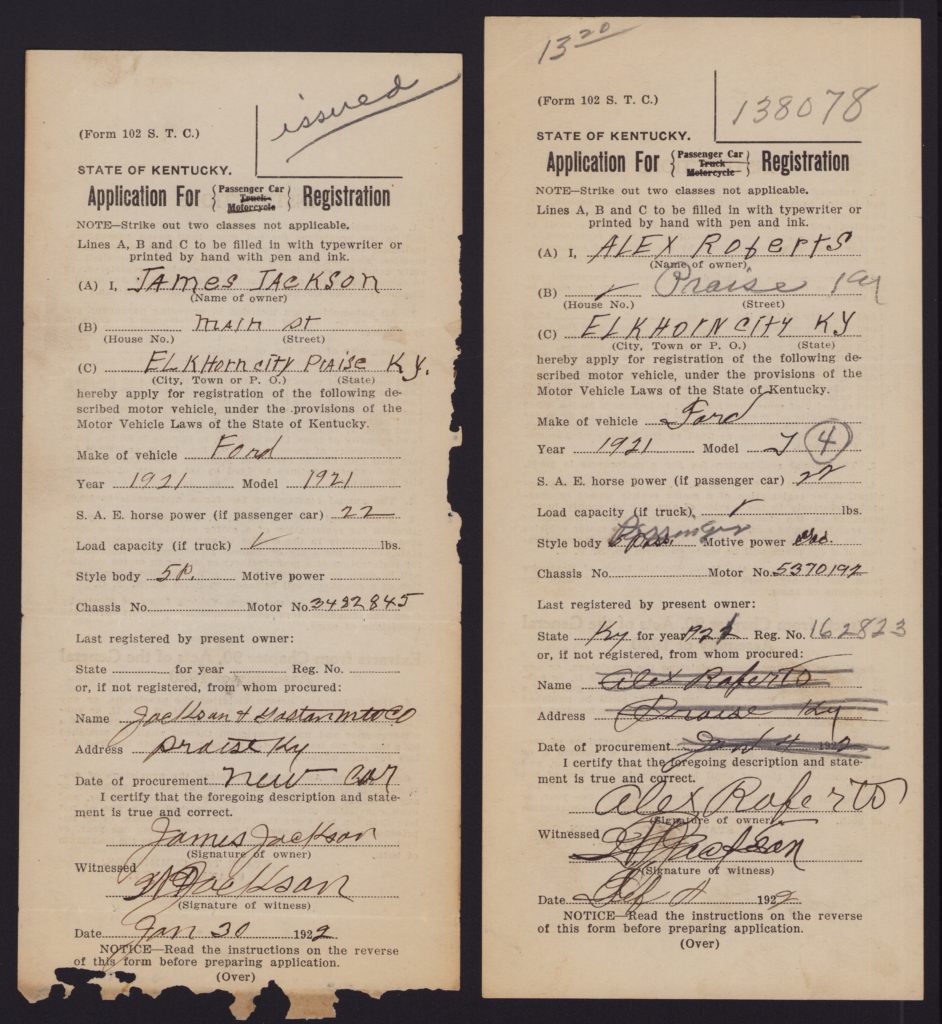 issued
(Form 102 S. T. C.)
STATE OF KENTUCKY.
Application For { Passenger Car Truck Motorcycle } Registration
NOTE—Strike out two classes not applicable.
Lines A, B and C to be filled in with typewriter or
printed by hand with pen and ink.
(A) I, JAMES JACKSON
(Name of owner)
(B) MAIN ST
(House No.) (Street)
(C) ELKHORN CITY PRAISE KY.
(City, Town or P. O.) (State)
hereby apply for registration of the following de-
scribed motor vehicle, under the provisions of the
Motor Vehicle Laws of the State of Kentucky.
Make of vehicle Ford
Year 1921 Model 1921
S. A. E. horse power (if passenger car) 22
Load capacity (if truck) ✓ lbs.
Style body 5P. Motive power
Chassis No. Motor No. 3482845
Last registered by present owner:
State for year Reg. No.
or, if not registered, from whom procured:
Name Jackson &
Address Praise Ky
Date of procurement new car
I certify that the foregoing description and state-
ment is true and correct.
James Jackson
(Signature of owner)
Witnessed Jackson
(Signature of witness)
Date Jan 30 1922
NOTICE—Read the instructions on the reverse
of this form before preparing application.
(Over)
13 20
(Form 102 S. T. C.)
138078
STATE OF KENTUCKY.
Application For { Passenger Car Truck Motorcycle } Registration
NOTE—Strike out two classes not applicable.
Lines A, B and C to be filled in with typewriter or
printed by hand with pen and ink.
(A) I, ALEX ROBERTS
(Name of owner)
(B) ✓ Praise Ky
(House No.) (Street)
(C) ELKHORN CITY KY
(City, Town or P. O.) (State)
hereby apply for registration of the following de-
scribed motor vehicle, under the provisions of the
Motor Vehicle Laws of the State of Kentucky.
Make of vehicle Ford
Year 1921 Model T 4
S. A. E. horse power (if passenger car) 22
Load capacity (if truck) ✓ lbs.
Style body Passenger Motive power
Chassis No. Motor No. 5370192
Last registered by present owner:
State Ky for year 1921 Reg. No. 162823
or, if not registered, from whom procured:
Name Alex Roberts
Address Praise Ky
Date of procurement Jan 4 1922
I certify that the foregoing description and state-
ment is true and correct.
Alex Roberts
(Signature of owner)
Witnessed Jackson
(Signature of witness)
Date 1922
NOTICE—Read the instructions on the reverse
of this form before preparing application.
(Over)